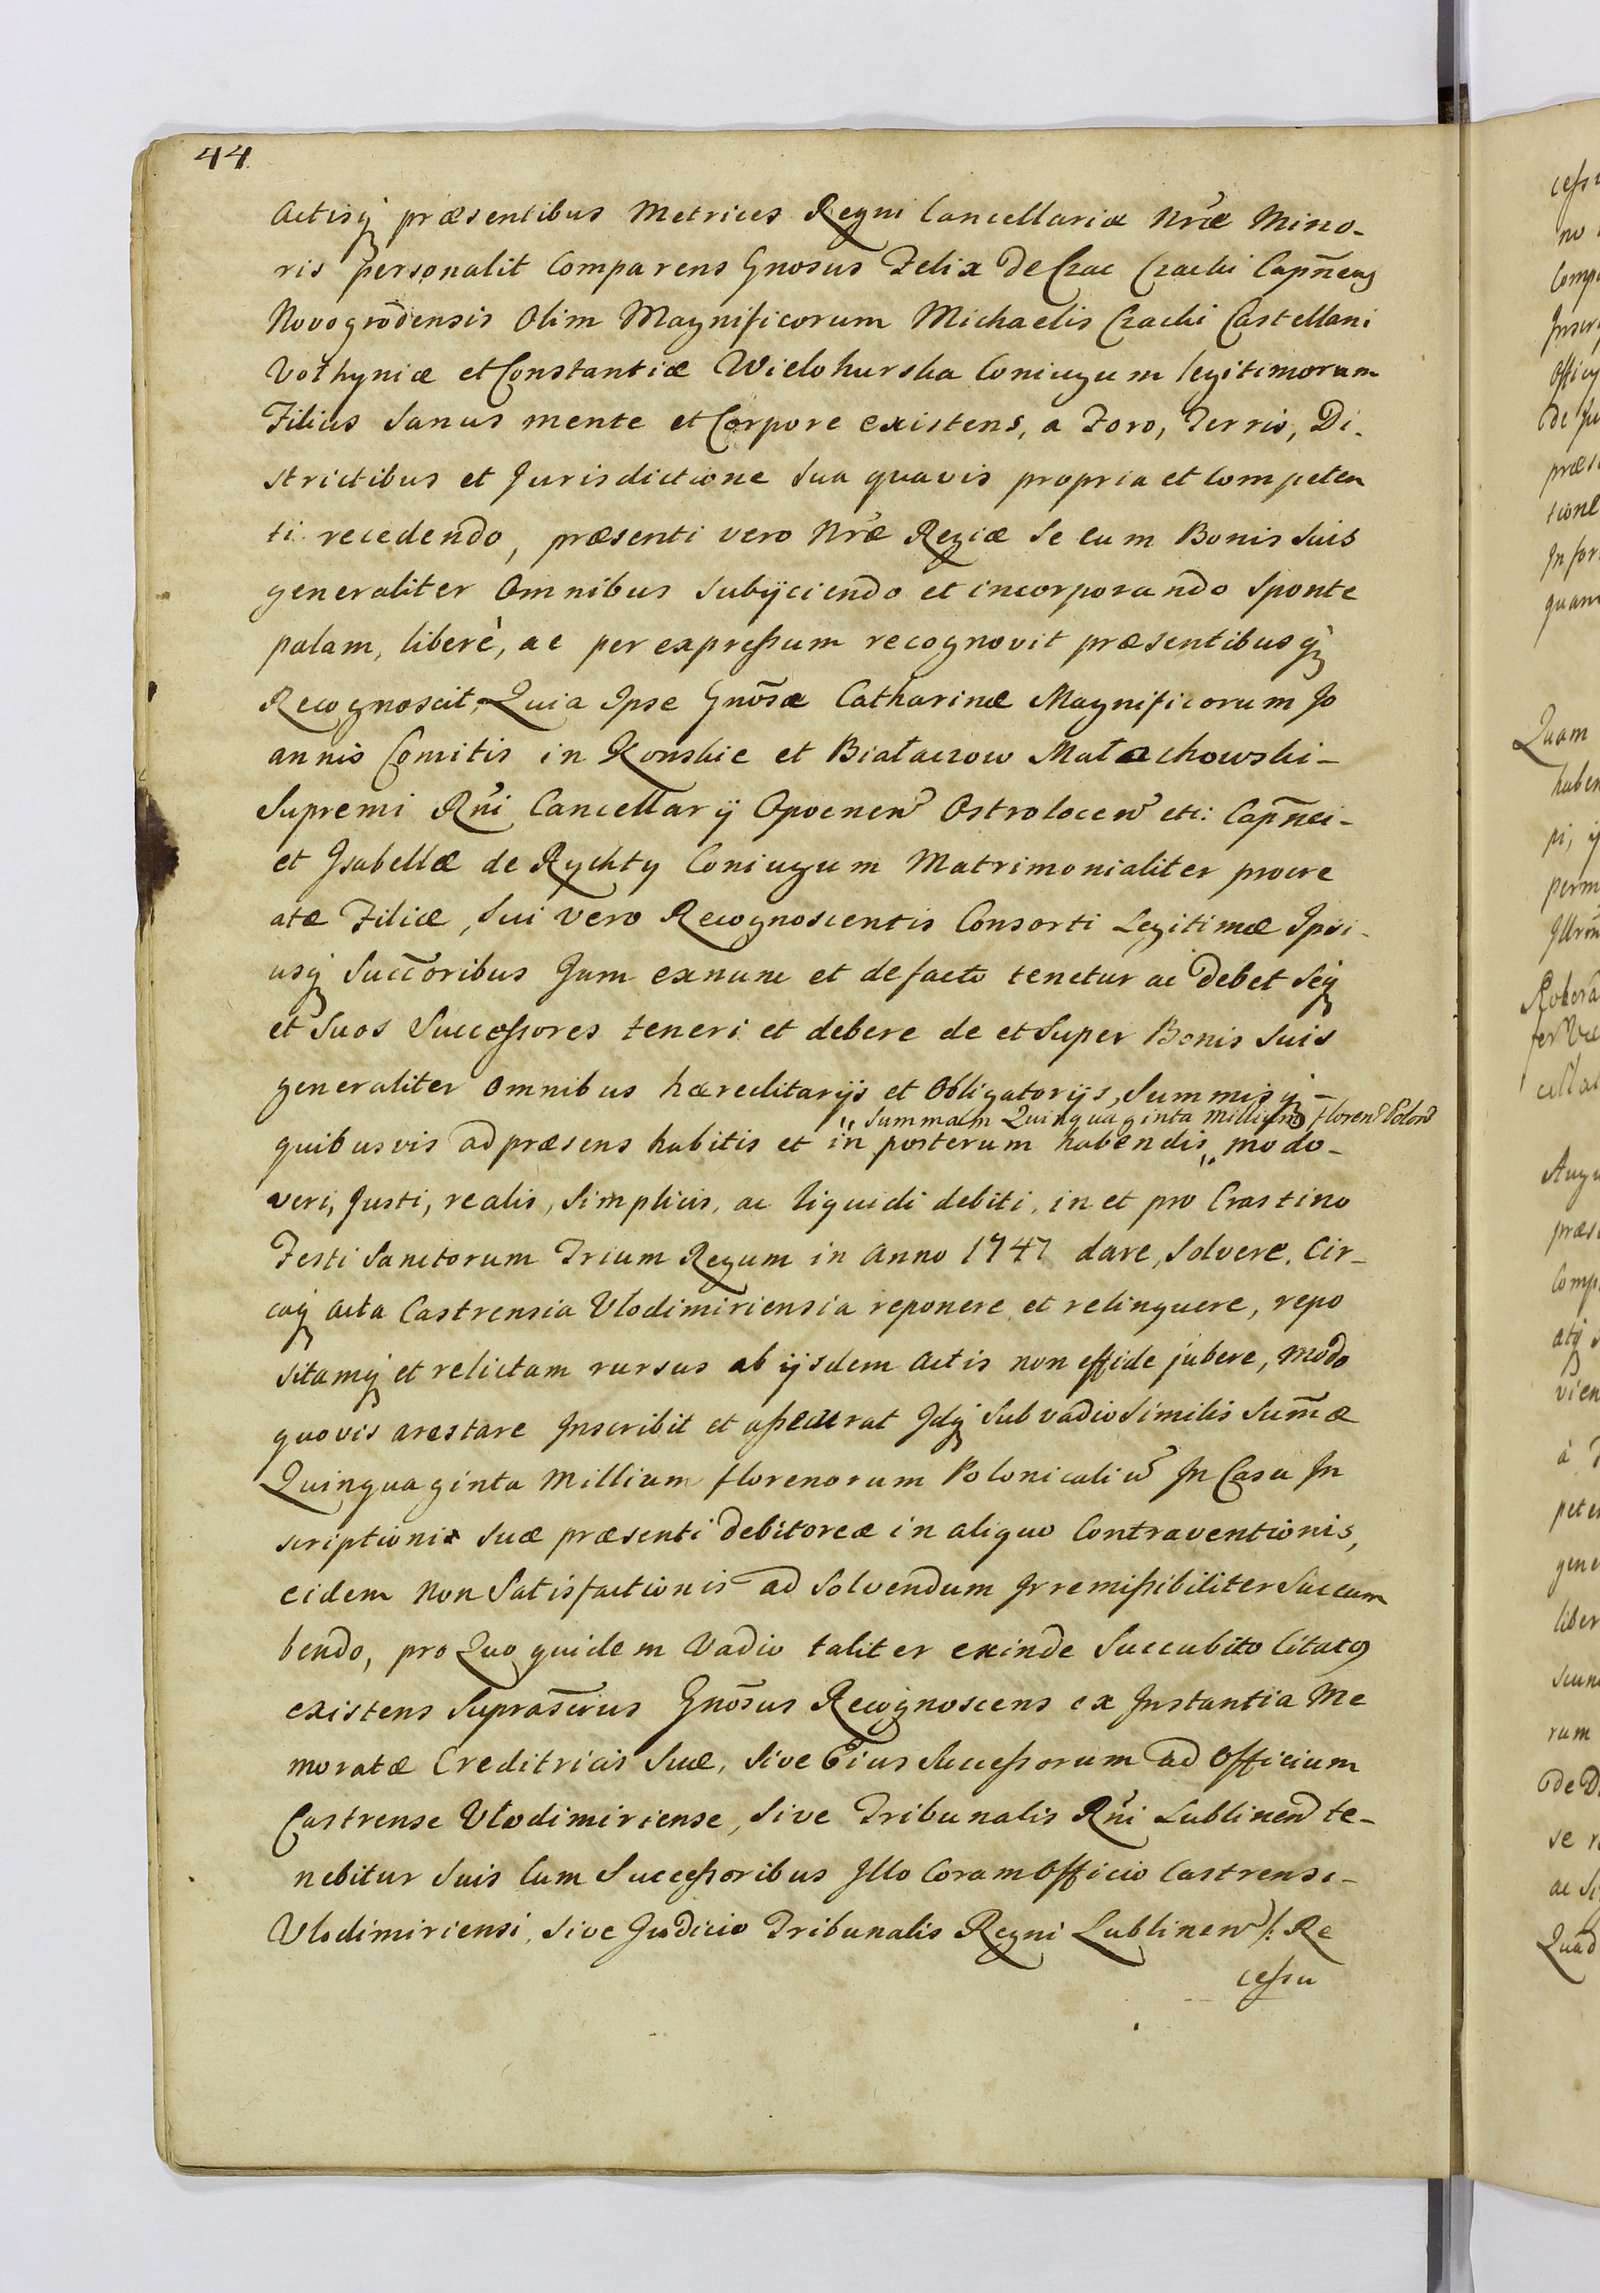 44
Actisq̃ præsentibus Metrices Regni Cancellariæ Nræ Mino-
ris personalit Comparens Gnosus Felix de Czac Czacki Capn̄eus
Novogrōdensis Olim Magnificorum Michaelis Czacki Castellani
Volhyniæ et Constantiæ Wielohurska Coniugum legitimorum
Filius Sanus mente et Corpore existens, a Foro, Terris, Di-
strictibus et Jurisdictione sua quavis propria et Competen
ti recedendo, præsenti vero Nræ Regiæ se cum Bonis suis
generaliter Omnibus subijciendo et incorporando Sponte
palam, liberè, ac per expressum recognovit præsentibusq̃
Recognoscit, Quia Ipse Gnōsæ Catharinæ Magnificorum Jo
annis Comitis in Konskie et Białaczow Małachowski-
Supremi Rni Cancellarij Opocnen Ostrolocen etc: Capn̄ei-
et Isabellæ de Rychty Coniugum Matrimonialiter procre
atæ Filiæ, Sui vero Recognoscentis Consorti Legitimæ Ipsi-
usq̃ Succ̄oribus Jam exnunc et defacto tenetur ac debet seq̃
et Suos Successores teneri et debere de et Super Bonis Suis
generaliter omnibus hæreditarijs et Obligatorijs, Summisq̃-
" Summam Quinquaginta Millium Floren Polon
quibusvis adpræsens habitis et in posterum habendis " modo-
veri, Justi, realis, Simplicis, ac liquidi debiti, in et pro Crastino
Festi Sanctorum Trium Regum in Anno 1747 dare, Solvere, Cir-
caq̃ acta Castrensia Vlodimiriensia reponere et relinquere, repo
sitamq̃ et relictam rursus ab ijsdem Actis non effide jubere, modo
quovis arestare Inscribit et assecurat Idq̃ Sub vadio similis Sum̄æ
Quinquaginta Millium florenorum Polonicaliu In Casu In
scriptionis suæ præsenti debitoreæ in aliquo Contraventionis,
eidem Non Satisfactionis ad Solvendum Irremissibiliter Succum
bendo, pro Quo quidem Vadio taliter exinde Succubito Citatus
existens Suprascrius Gnōsus Recognoscens ex Instantia Me
moratæ Creditricis Suæ, Sive Eius Successorum ad Officium
Castrense Vlodimiriense, Sive Tribunalis Rni Lublinen te-
nebitur Suis Cum Successoribus Illo Coram Officio Castrensi-
Vlodimiriensi, Sive Judicio Tribunalis Regni Lublinen /: Re
cessu